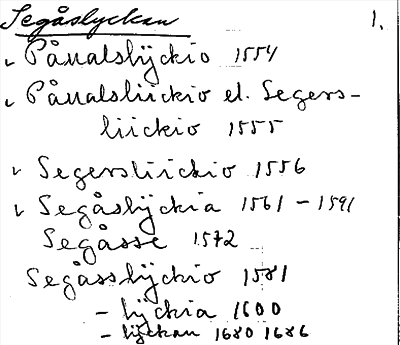 Segåslyckan 1.
v Pånalslÿckio 1554
v Pånalsliickio el. Segers-
liickio 1555
v Segersliickio 1556
v Segåslÿckia 1561 - 1591
Segåsse 1572
Segåsslÿckio 1581
- lÿckia 1600
- lÿckan 1680 1686